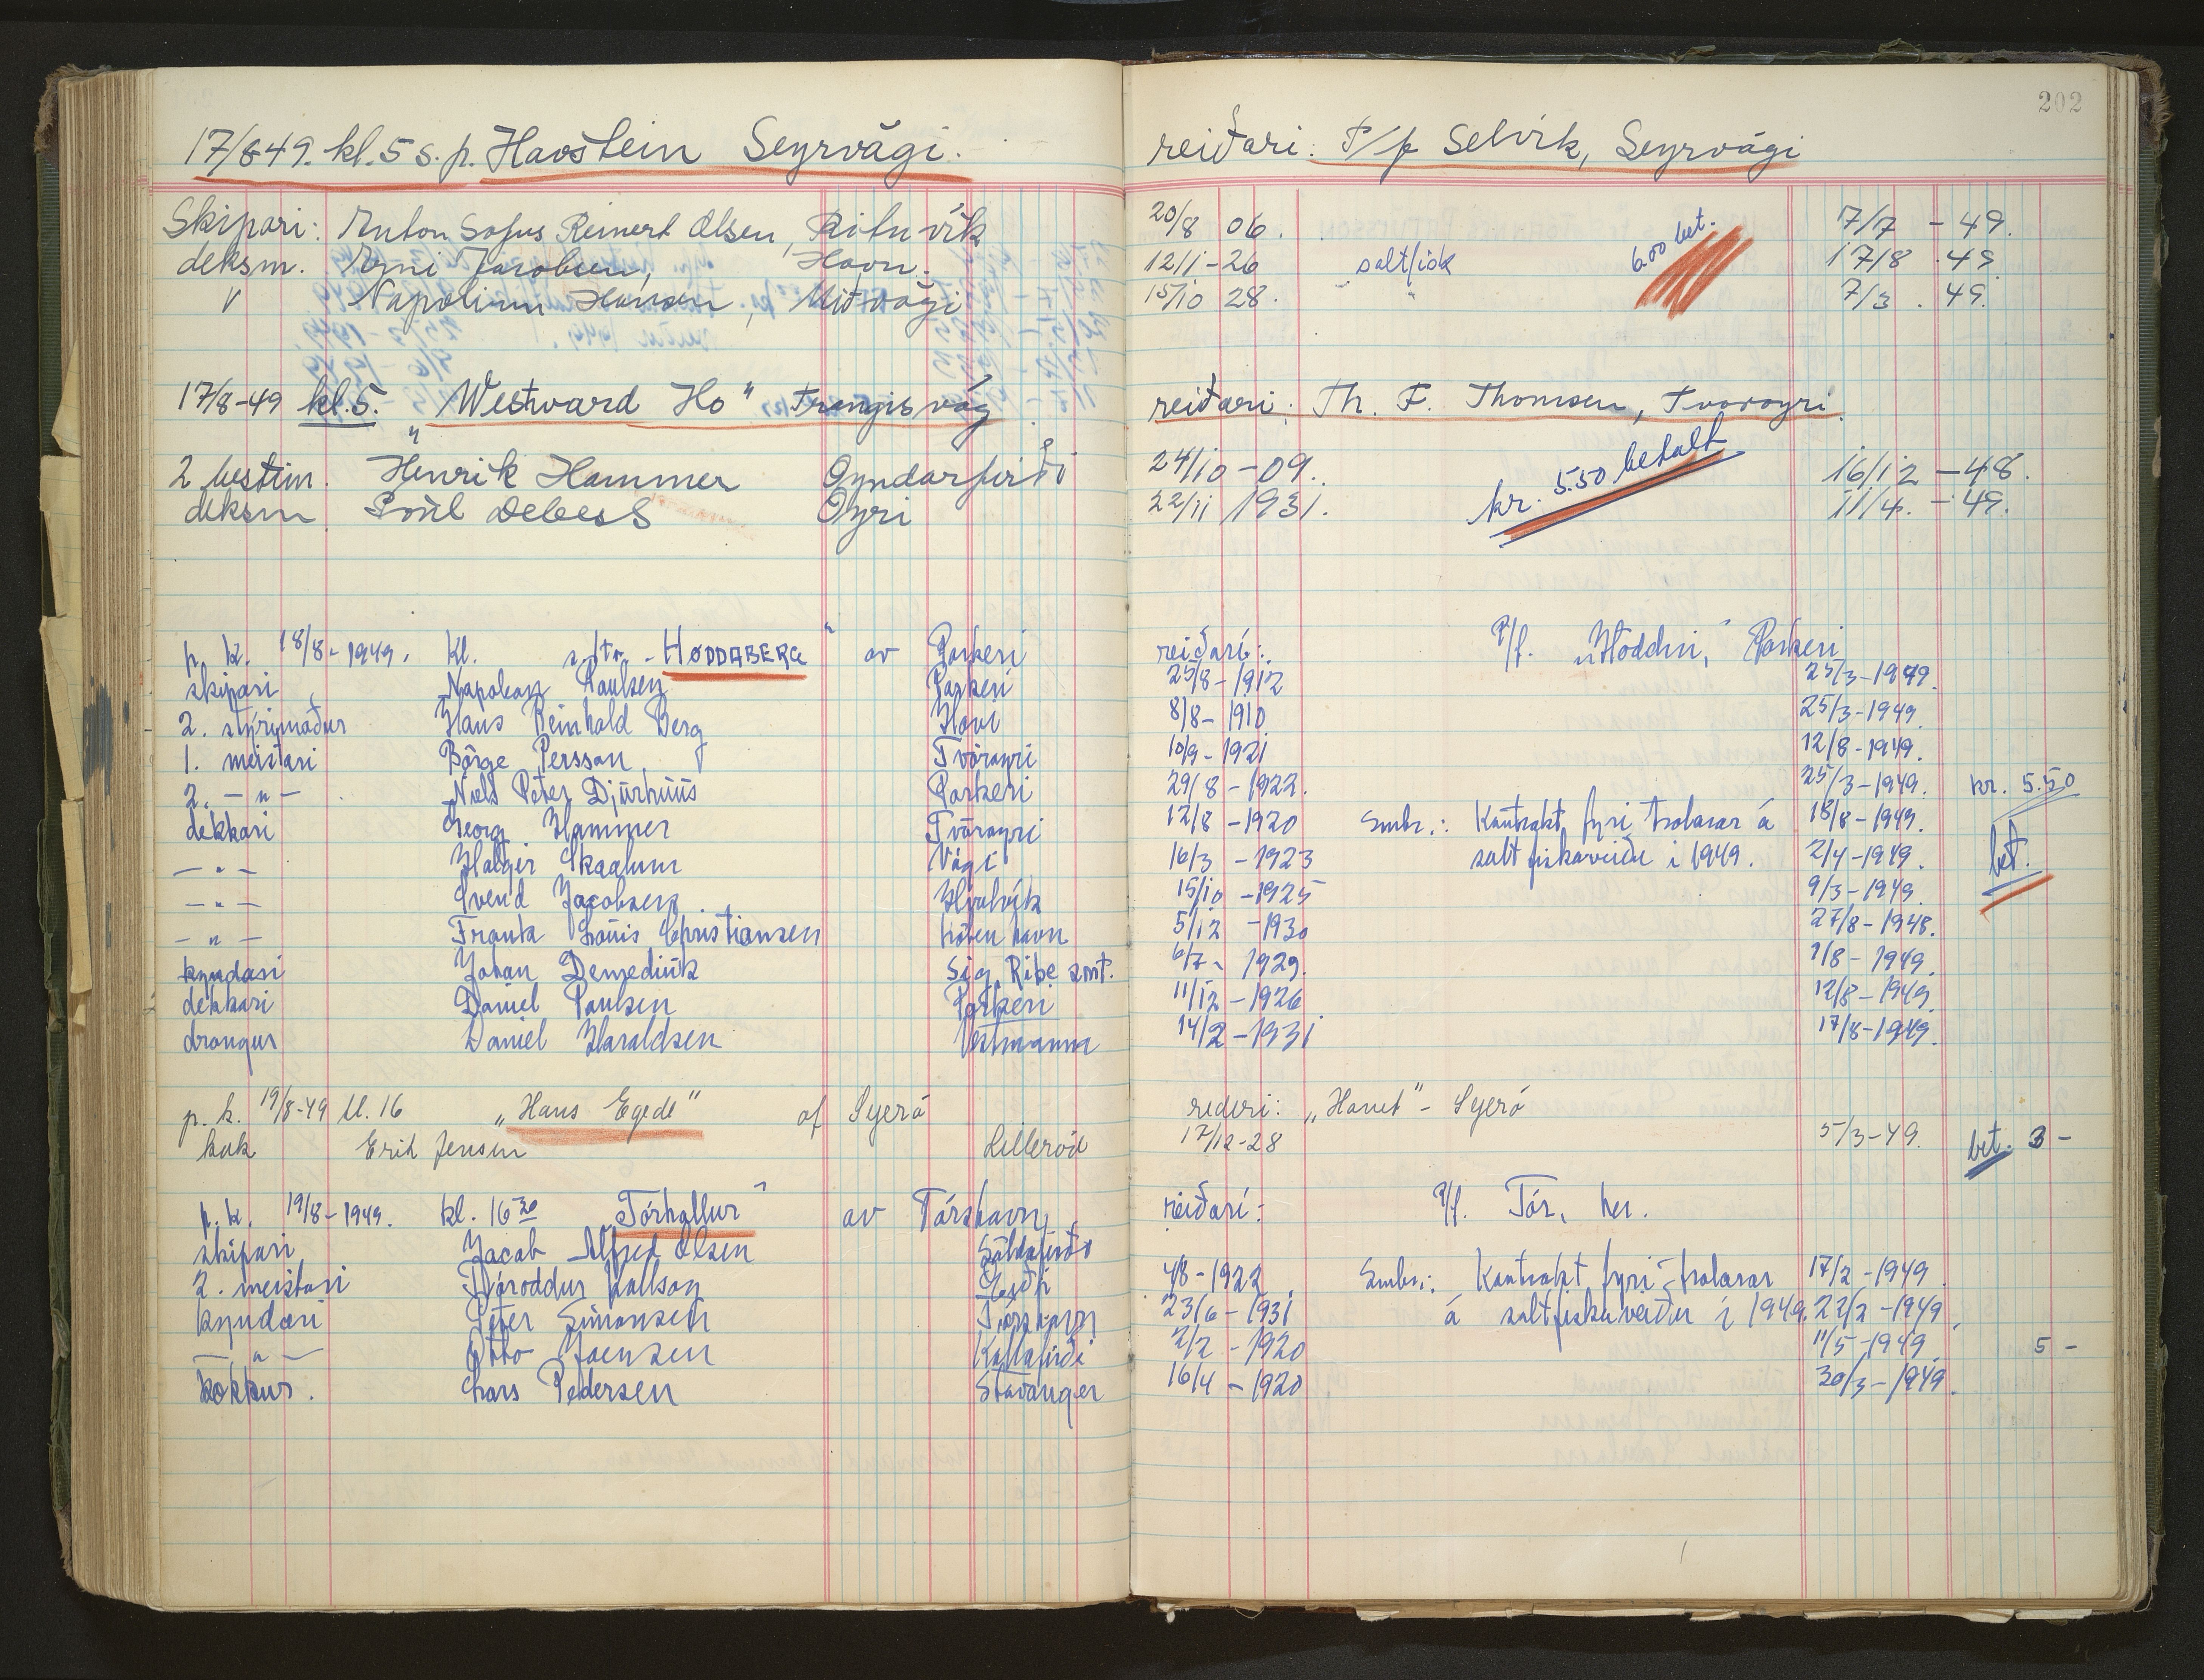 202
17/8 49. kl. 5 s. p. Havstein Seyrvági. reiðari: P/f Selvík, Seyrvági
Skipari: Anton Sofus Reinert Olsen, Rituvík 20/8 06. 7/7 - 49.
deksm. Erni Jacobsen, Havn. 12/1-26 saltfisk 6.00 bet. 17/8 49
V Napolium Hansen, Miðvági 15/10 28. " " 7/3 . 49.
17/8-49 kl. 5. "Westward Ho" Trangisvág reiðari: Th. F. Thomsen, Tvøroyri
2 bestm. Henrik Hammer Øyndarfirði 24/10-09. kr. 5.50 betalt 16/12 - 48.
deksm Poul Debess Oyri 22/11 1931. 11/4. - 49.
p. k. 18/8-1949. Kl. s/tr. "HODDABERG" av Porkeri reiðarí: P/f. "Hoddin," Porkeri
skipari Napoleon Poulsen Porkeri 25/8-1912 25/3-1949.
2. stýrimaður Hans Reinhold Berg Hovi 8/8-1910 25/3-1949.
1. meistari Börge Persson Tvöroyri 10/9-1921 12/8-1949.
2. -"- Niels Peter Djurhuus Porkeri 29/8-1922. 25/3-1949. kr. 5.50
dekkari Georg Hammer Tvöroyri 12/8-1920 Smbr.: Kontrakt fyri trolarar á 18/8-1949.
-"- Holgir Skaalum Vági 16/3 -1923 saltfiskaveiðu i 1949. 2/4-1949. bet.
-"- Svend Jacobsen Hvalvík 15/10-1925 9/3-1949.
-"- Frank Louis Christiansen 5/12 -1930 27/8-1948.
kyndari Johan Sig, Ribe amt. 6/7- 1929. 1/8-1949.
dekkari Daniel Poulsen Porkeri 11/12-1926 12/8-1949.
drongur Daniel Haraldsen Vestmanna 14/2-1931 17/8-1949.
p. k. 19/8-49 kl. 16 "Hans Egede" af Syerö rederi: "Havet" - Syerö
kok Erik Jensen Lilleröd 17/12-28 5/3-49. bet. 3 -
p. k. 19/8-1949. kl. 16 30 Tórhallur" av Tórshavn, reiðarí: P/f. Tór, her.
skipari Jacob Alfred Olsen 4/8-1922 Smbr.: Kontrakt fyri trolarar 17/2-1949.
2. meistari Tóroddur Eiði 23/6-1931 á saltfiskaveiðu i 1949. 22/2-1949.
kyndari Peter Simonsen Tórshavn 2/2 -1920 11/5-1949. 5 -
-"- Otto Joensen Kollafirði 16/4-1920 30/3-1949.
kokkur. Lars Pedersen Stavanger